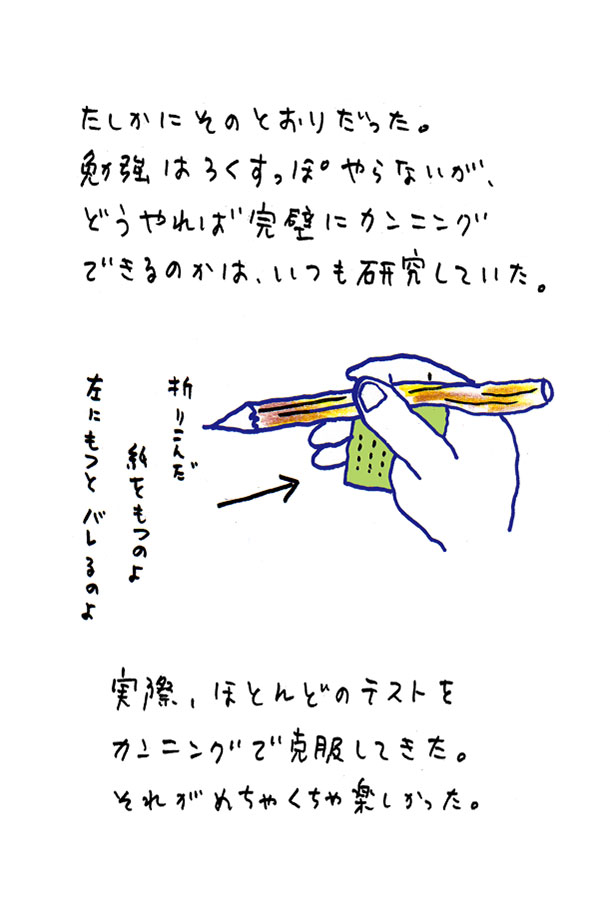 たしかにそのとおりだった。
勉強はろくすっぽやらないが、
どうやれば完璧にカンニング
できるのかは、いつも研究していた。
折りこんだ
紙をもつのよ
左にもつとバレるのよ
実際、ほとんどのテストを
カンニングで克服してきた。
それがめちゃくちゃ楽しかった。